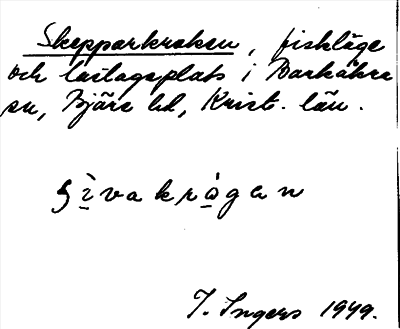 Skepparkroken, fiskläge
och lastageplats i Barkåkra
sn, Bjäre hd, Krist. län.
I. Ingers 1949.